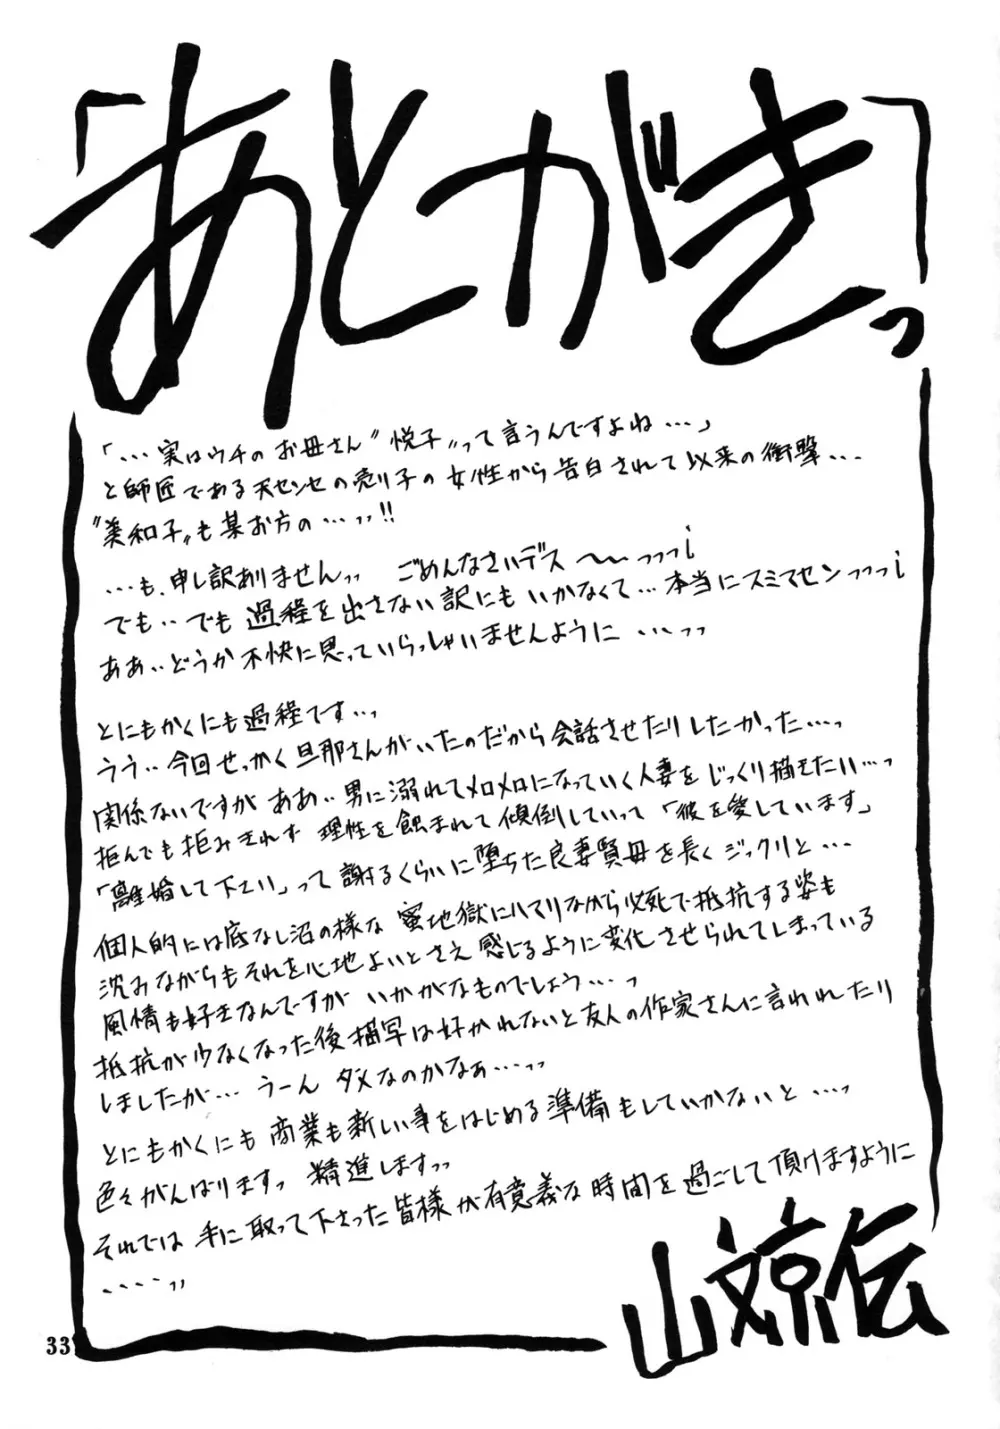 「あとがきっ」
「…実はウチのお母さん〝悦子〟って言うんですよね…」
と師匠である天センセの売り子の女性から告白されて以来の衝撃…
〝美和子〟も某お方の…ッッ!!
…も、申し訳ありませんッッ ごめんなさいデス〜〜ッッッ¡
でも‥でも過程を出さない訳にもいかなくて…本当にスミマセンッッッ¡
ああ‥どうか不快に思っていらっしゃいませんように…ッッ
とにもかくにも過程です…ッ
うう‥今回せっかく旦那さんがいたのだから会話させたりしたかった…ッ
関係ないですがああ‥男に溺れてメロメロになっていく人妻をじっくり描きたい…ッ
拒んでも拒みきれず理性を蝕まれて傾倒していって「彼を愛しています」
「離婚して下さい」って謝るくらいに堕ちた良妻賢母を長くジックリと…
個人的には底なし沼の様な蜜地獄にハマりながら必死で抵抗する姿も
沈みながらもそれを心地よいとさえ感じるように変化させられてしまっている
風情も好きなんですがいかがなものでしょう…ッ
抵抗が少なくなった後描写は好かれないと友人の作家さんに言われたり
しましたが…うーんダメなのかなぁ…ッッ
とにもかくにも商業も新しい事をはじめる準備もしていかないと…ッ
色々がんばりますッ 精進しますッッ
それでは手に取って下さった皆様が有意義な時間を過ごして頂けますように
‥‥ッッ
山文京伝
33